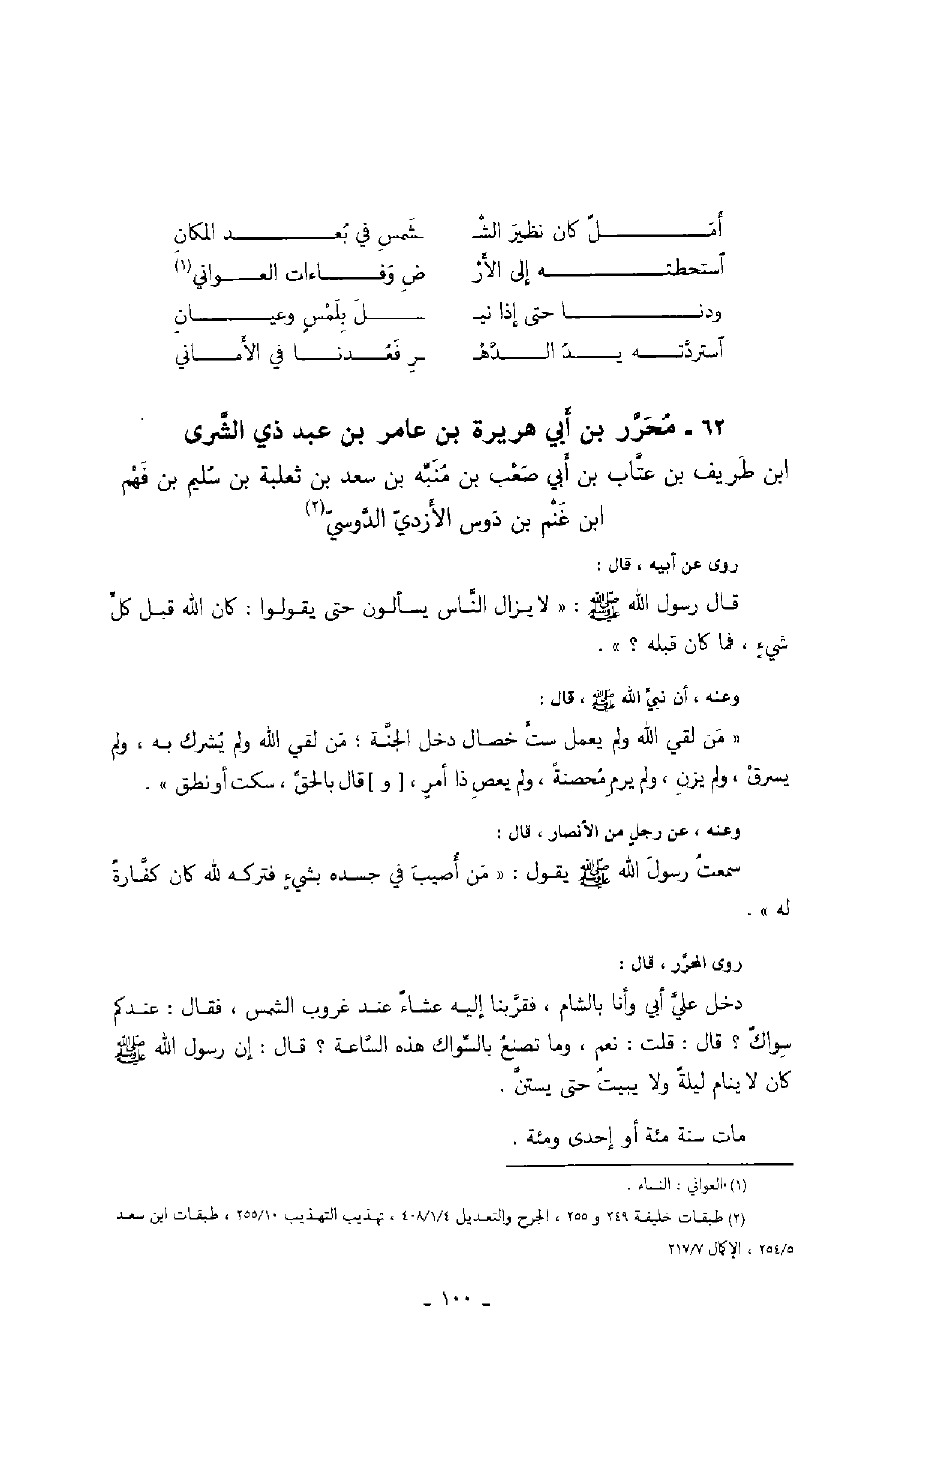 أمَـــــلٌ كان نظيرَ الشّـ ـشَمسِ في بُعـــــد المكانِ
اَستحطتـــــه إلى الأرْ ضِ وَفـــاءات العـــواني(١)
ودنـــــا حتى إذا نيـ ـــلَ بِلَمْسٍ وعيـــانِ
اَستردّتـــه يـــدُ الـــدّهْـ ـرِ فَعُـــدنـــا في الأمـــاني
٦٢ ـ مُحَرَّر بن أبي هريرة بن عامر بن عبد ذي الشَّرى
ابن طَريف بن عتَّاب بن أبي صَعْب بن مُنَبِّه بن سعد بن ثعلبة بن سُليم بن فَهْم
ابن غَنْم بن دَوس الأزديّ الدَّوسيّ(٢)
روى عن أبيه ، قال :
قـال رسول الله ﷺ : « لا يـزال النَّاس يسـألون حتى يقـولـوا : كان الله قبـل كلّ
شيءٍ ، فما كان قبله ؟ » .
وعنه ، أن نبيَّ الله ﷺ ، قال :
« مَن لقي الله ولم يعمل ستَّ خصـال دخل الجنَّـة ؛ مَن لقي الله ولم يُشرك بـه ، ولم
يسرقْ ، ولم يزنِ ، ولم يرمِ مُحصنةً ، ولم يعصِ ذا أمرٍ ، [ و ] قال بالحقّ ، سكت أو نطق » .
وعنه ، عن رجلٍ من الأنصار ، قال :
سمعتُ رسولَ الله ﷺ يقـول : « مَن أُصيبَ في جسـده بشيءٍ فتركـه لله كان كفَّـارةً
له » .
روى المحرَّر ، قال :
دخل عليَّ أبي وأنا بالشام ، فقرَّبنا إليـه عشـاءً عنـد غروب الشمس ، فقـال : عنـدكم
سِواكٌ ؟ قال : قلت : نعم ، وما تصنعُ بالسِّواك هذه السَّاعـة ؟ قـال : إن رسول الله ﷺ
كان لا ينام ليلةً ولا يبيتُ حتى يستنَّ .
مات سنة مئة أو إحدى ومئة .
(١) العواني : النساء .
(٢) طبقات خليفة ٢٤٩ و ٢٥٥ ، الجرح والتعديل ٤٠٨/١/٤ ، تهذيب التهذيب ٢٥٥/١٠ ، طبقات ابن سعد
٢٥٤/٥ ، الإكمال ٢١٧/٧
ـ ١٠٠ ـ